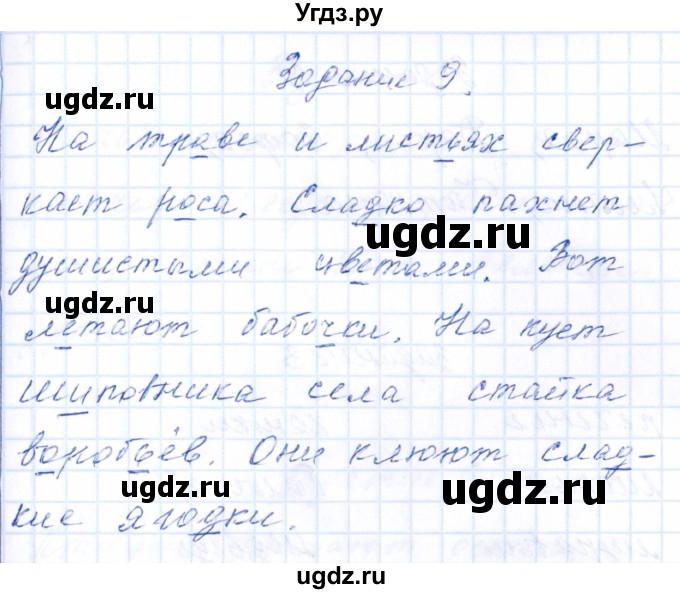 Угдз.ру
Задание 9.
ugdz.ru
ugdz.ru
На траве и листьях свер-
кает роса. Сладко пахнет
ugdz.ru
душистыми цветами. Вот
ugdz.ru
летают бабочки. На куст
шиповника села стайка
воробьёв. Они клюют слад-
ugdz.ru
ugdz.ru
кие ягодки.
ugdz.ru